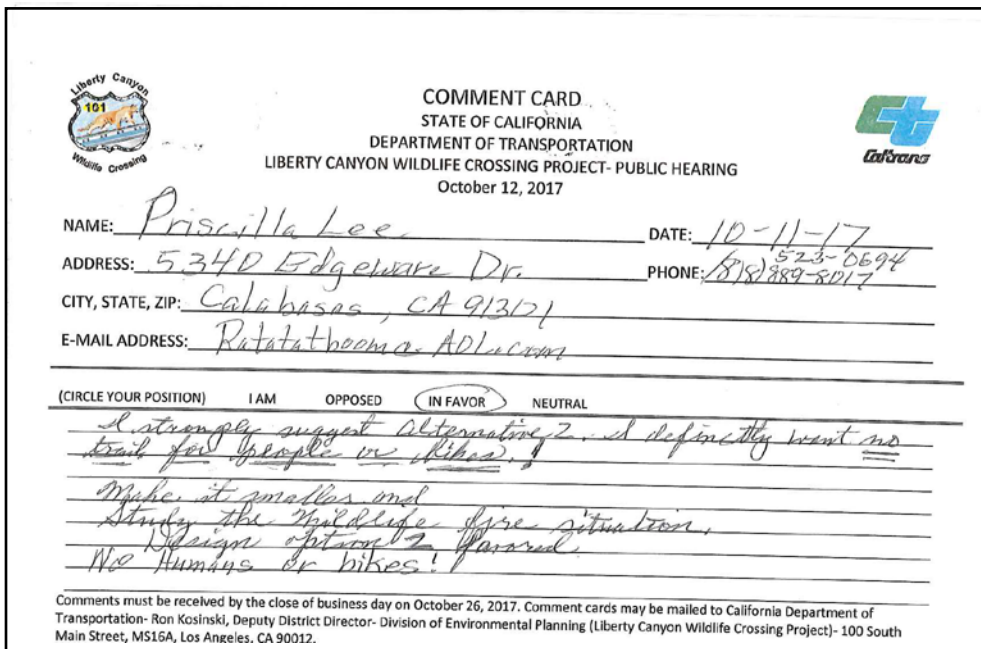 Liberty Canyon
101
Wildlife Crossing
COMMENT CARD
STATE OF CALIFORNIA
DEPARTMENT OF TRANSPORTATION
LIBERTY CANYON WILDLIFE CROSSING PROJECT- PUBLIC HEARING
October 12, 2017
Ct
Caltrans
NAME: Priscilla Lee DATE: 10-11-17
523-0694
ADDRESS: 5340 Edgeware Dr. PHONE: (818) 889-8017
CITY, STATE, ZIP: Calabasas, CA 91301
E-MAIL ADDRESS: AOL.com
(CIRCLE YOUR POSITION) I AM OPPOSED IN FAVOR NEUTRAL
I strongly suggest alternative 2. I definetly want no
trail for people or bikes!
Make it smaller and
Study the Wildlife fire situation.
Design option 2 favored
No Humans or bikes!
Comments must be received by the close of business day on October 26, 2017. Comment cards may be mailed to California Department of
Transportation- Ron Kosinski, Deputy District Director- Division of Environmental Planning (Liberty Canyon Wildlife Crossing Project)- 100 South
Main Street, MS16A, Los Angeles, CA 90012.